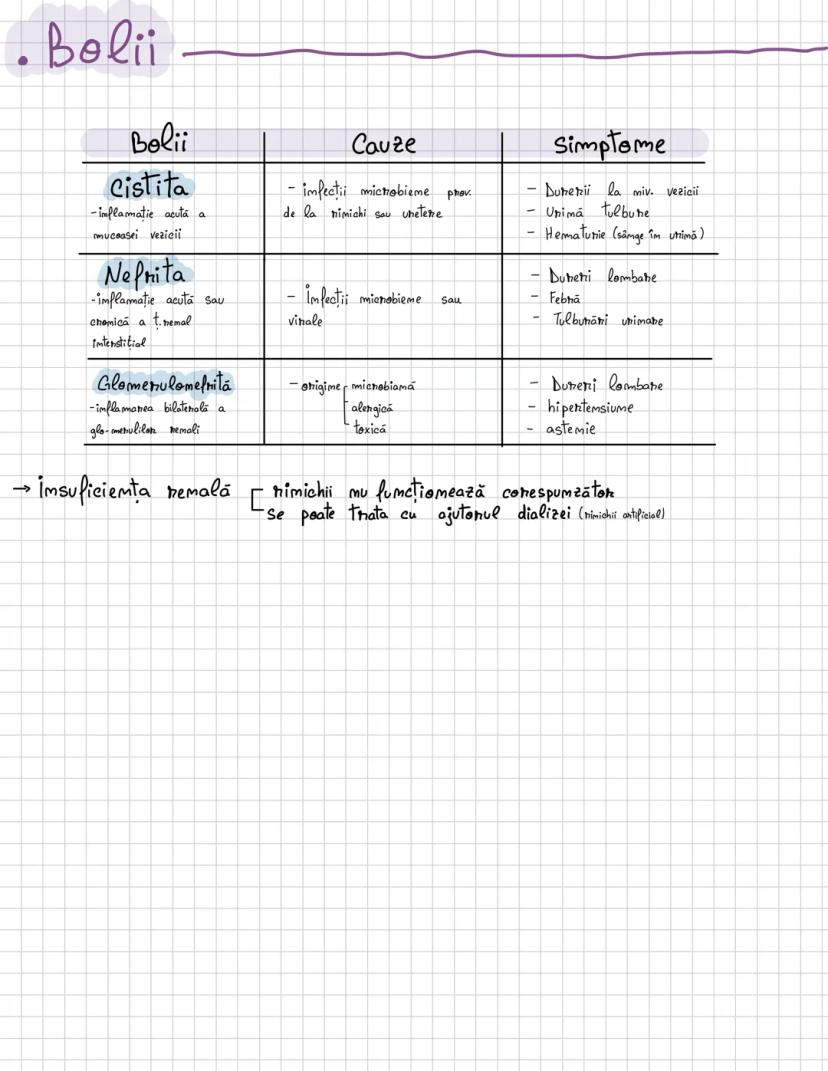 . Bolii
Bolii Cauze Simptome
Cistita
- inflamație acută a
mucoasei vezicii
- imfecții microbieme prov.
de la rinichi sau uretere
- Dureri la niv. vezicii
- Urină tulbure
- Hematurie (sânge în urină)
Nefrita
- inflamație acută sau
cronică a ț. renal
interstițial
- Infecții microbiene sau
virale
- Dureri lombare
- Febră
- Tulburări urinare
Glomerulonefrită
- inflamarea bilaterală a
glo-merulilor renali
- origine microbiană
alergică
toxică
- Dureri lombare
- hipertensiune
- astenie
→ însuficiența renală rinichii nu funcționează corespunzător
se poate trata cu ajutorul dializei (rinichii artificial)